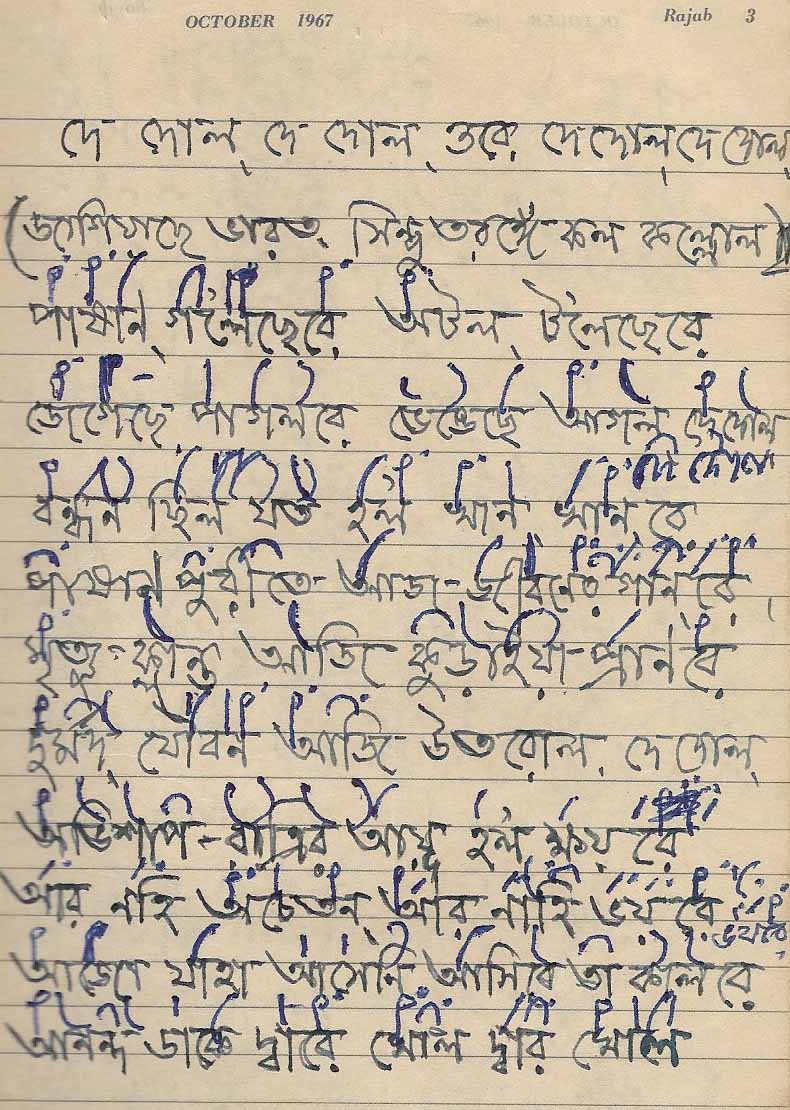 OCTOBER 1967 Rajab 3
দে দোল্ দে দোল্ ওরে দে দোল্ দে দোল্
(জাগিয়াছে ভারত্ সিন্ধু তরঙ্গে কল কল্লোল)
পাষান্ গলেছেরে অটল্ টলেছেরে
জেগেছে পাগলরে ভেঙেছে আগল্ দে দোল
দে দোল
বন্ধন ছিল যত হল খান খান রে
পাষান পুরীতে আজ জীবনের গান রে
মৃত্যু ক্লান্ত আজি কুড়াইয়া প্রান রে
দুর্মদ্ যৌবন আজি উতরোল দে দোল্
অভিশাপ রাত্রির আয়ু হল ক্ষয় রে
আর নহি অচেতন্ আর নাহি ভয় রে
ভয়রে
আজো যাহা আসেনি আসিবে তা কাল রে
আনন্দ ডাকে দ্বারে খোল দ্বার খোল